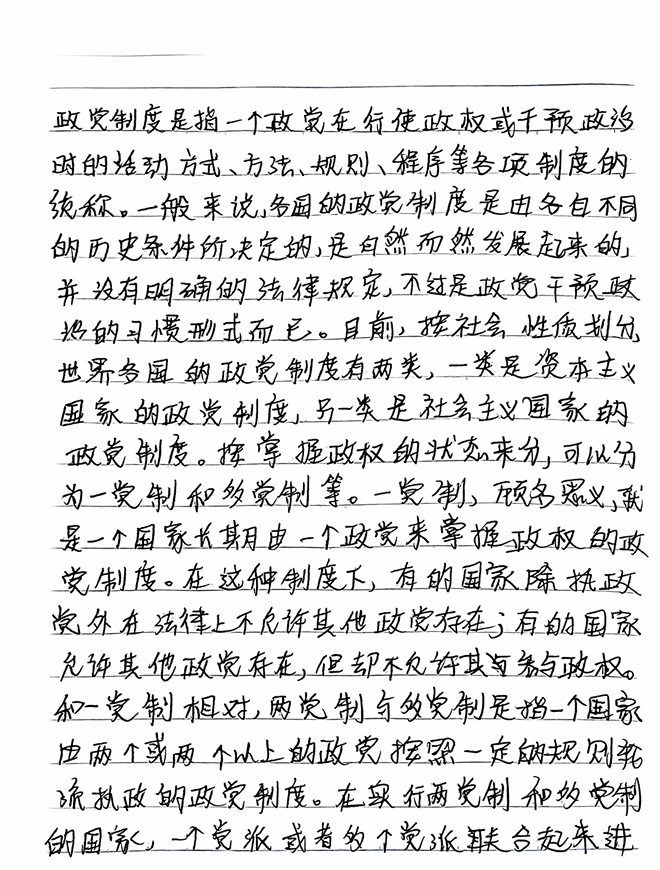 政党制度是指一个政党在行使政权或干预政治
时的活动方式、方法、规则、程序等各项制度的
统称。一般来说,各国的政党制度是由各自不同
的历史条件所决定的,是自然而然发展起来的,
并没有明确的法律规定,不过是政党干预政
治的习惯形式而已。目前,按社会性质划分,
世界各国的政党制度有两类,一类是资本主义
国家的政党制度,另一类是社会主义国家的
政党制度。按掌握政权的状态来分,可以分
为一党制和多党制等。一党制,顾名思义,就
是一个国家长期由一个政党来掌握政权的政
党制度。在这种制度下,有的国家除执政
党外在法律上不允许其他政党存在;有的国家
允许其他政党存在,但却不允许其参与政权。
和一党制相对,两党制与多党制是指一个国家
由两个或两个以上的政党按照一定的规则轮
流执政的政党制度。在实行两党制和多党制
的国家,一个党派或者多个党派联合起来进